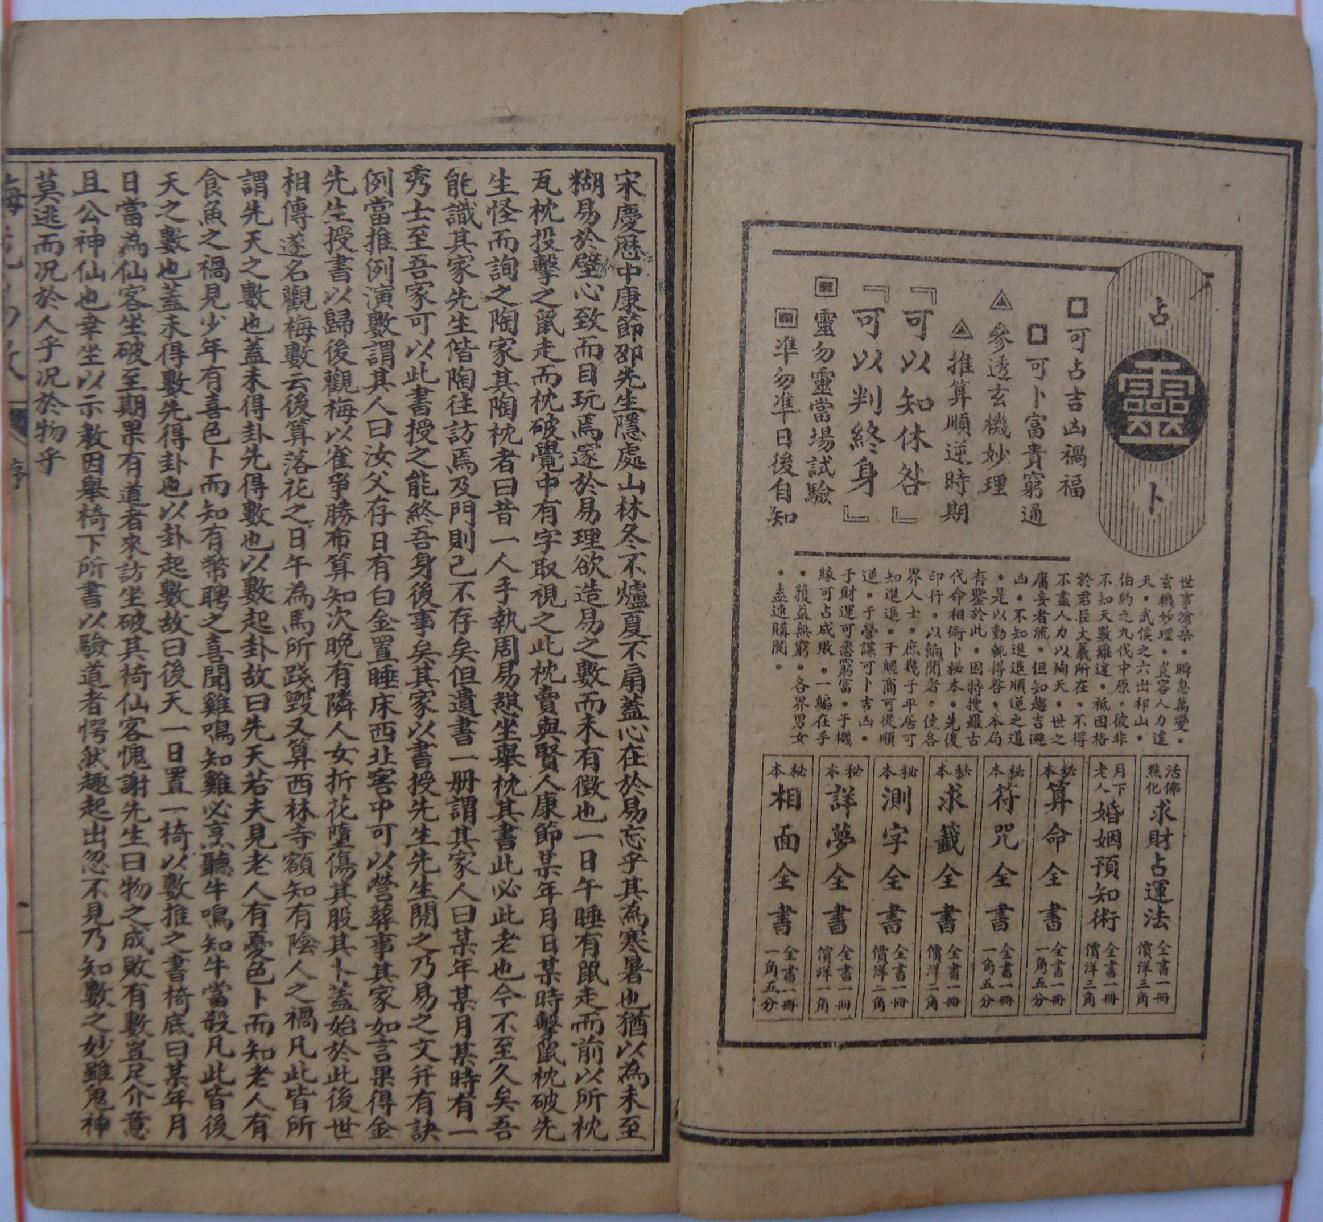 占靈卜
可占吉凶禍福
可卜富貴窮通
參透玄機妙理
推算順逆時期
『可以知休咎』
『可以判終身』
靈勿靈當場試驗
準勿準日後自知
世事滄桑。瞬息萬變。
玄機妙理。豈容人力違
天。武侯之六出祁山。
伯約之九伐中原。彼非
不知天數難違。祗因格
於君臣大義所在。不得
不盡人力以殉天。世之
庸妄者流。但知趨吉避
凶。不知進退順逆之道
。是以動輒得咎。本局
有鑒於此。因特搜羅古
代命相術卜秘本。先後
印行。以餉閱者。使各
界人士。庶幾于平居可
知進退。于經商可從順
逆。于營謀可卜吉凶。
于財運可悉窮富。于機
緣可占成敗。一編在手
。獲益無窮。各界男女
。盍速購閱。
活佛點化求財占運法全書一冊價洋三角
月下老人婚姻預知術全書一冊價洋三角
秘本算命全書全書一冊一角五分
秘本符咒全書全書一冊一角五分
秘本求籤全書全書一冊價洋二角
秘本測字全書全書一冊價洋二角
秘本詳夢全書全書一冊價洋一角
秘本相面全書全書一冊一角五分
宋慶歷中康節邵先生隱處山林冬不爐夏不扇蓋心在於易忘乎其為寒暑也猶以為未至
糊易於壁心致而目玩焉邃於易理欲造易之數而未有徵也一日午睡有鼠走而前以所枕
瓦枕投擊之鼠走而枕破覺中有字取視之此枕賣與賢人康節某年月日某時擊鼠枕破先
生怪而詢之陶家其陶枕者曰昔一人手執周易憩坐舉枕其書此必此老也今不至久矣吾
能識其家先生偕陶往訪焉及門則已不存矣但遺書一冊謂其家人曰某年某月某時有一
秀士至吾家可以此書授之能終吾身後事矣其家以書授先生先生閱之乃易之文并有訣
例當推例演數謂其人曰汝父存日有白金置睡床西北窖中可以營葬事其家如言果得金
先生授書以歸後觀梅以雀爭勝布算知次晚有隣人女折花墮傷其股其卜蓋始於此後世
相傳遂名觀梅數云後算落花之日午為馬所踐毀又算西林寺額知有陰人之禍凡此皆所
謂先天之數也蓋未得卦先得數也以數起卦故曰先天若夫見老人有憂色卜而知老人有
食魚之禍見少年有喜色卜而知有幣聘之喜聞雞鳴知雞必烹聽牛鳴知牛當殺凡此皆後
天之數也蓋未得數先得卦也以卦起數故曰後天一日置一椅以數推之書椅底曰某年月
日當為仙客坐破至期果有道者來訪坐破其椅仙客愧謝先生曰物之成敗有數豈足介意
且公神仙也幸坐以示教因舉椅下所書以驗道者愕然趨起出忽不見乃知數之妙雖鬼神
莫逃而況於人乎況於物乎
梅花易數
序